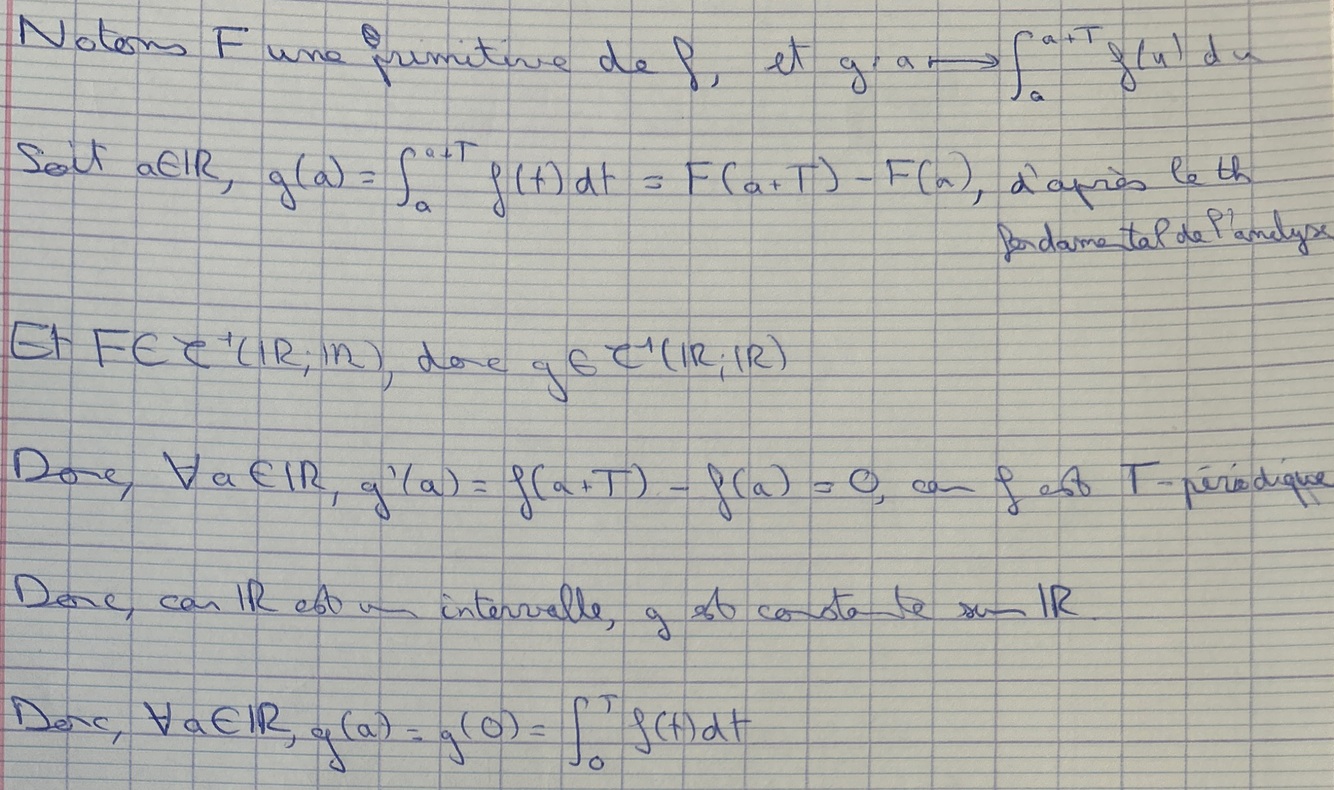 Notons F une primitive de f, et g: a ⟼ ∫_a^{a+T} f(u) du
Soit a∈ℝ, g(a) = ∫_a^{a+T} f(t) dt = F(a+T) - F(a), d'après le th
fondamental de l'analyse
Et F∈C¹(ℝ;ℝ), donc g∈C¹(ℝ;ℝ)
Donc, ∀a∈ℝ, g'(a) = f(a+T) - f(a) = 0, car f est T-périodique
Donc, car ℝ est un intervalle, g est constante sur ℝ
Donc, ∀a∈ℝ, g(a) = g(0) = ∫_0^T f(t)dt